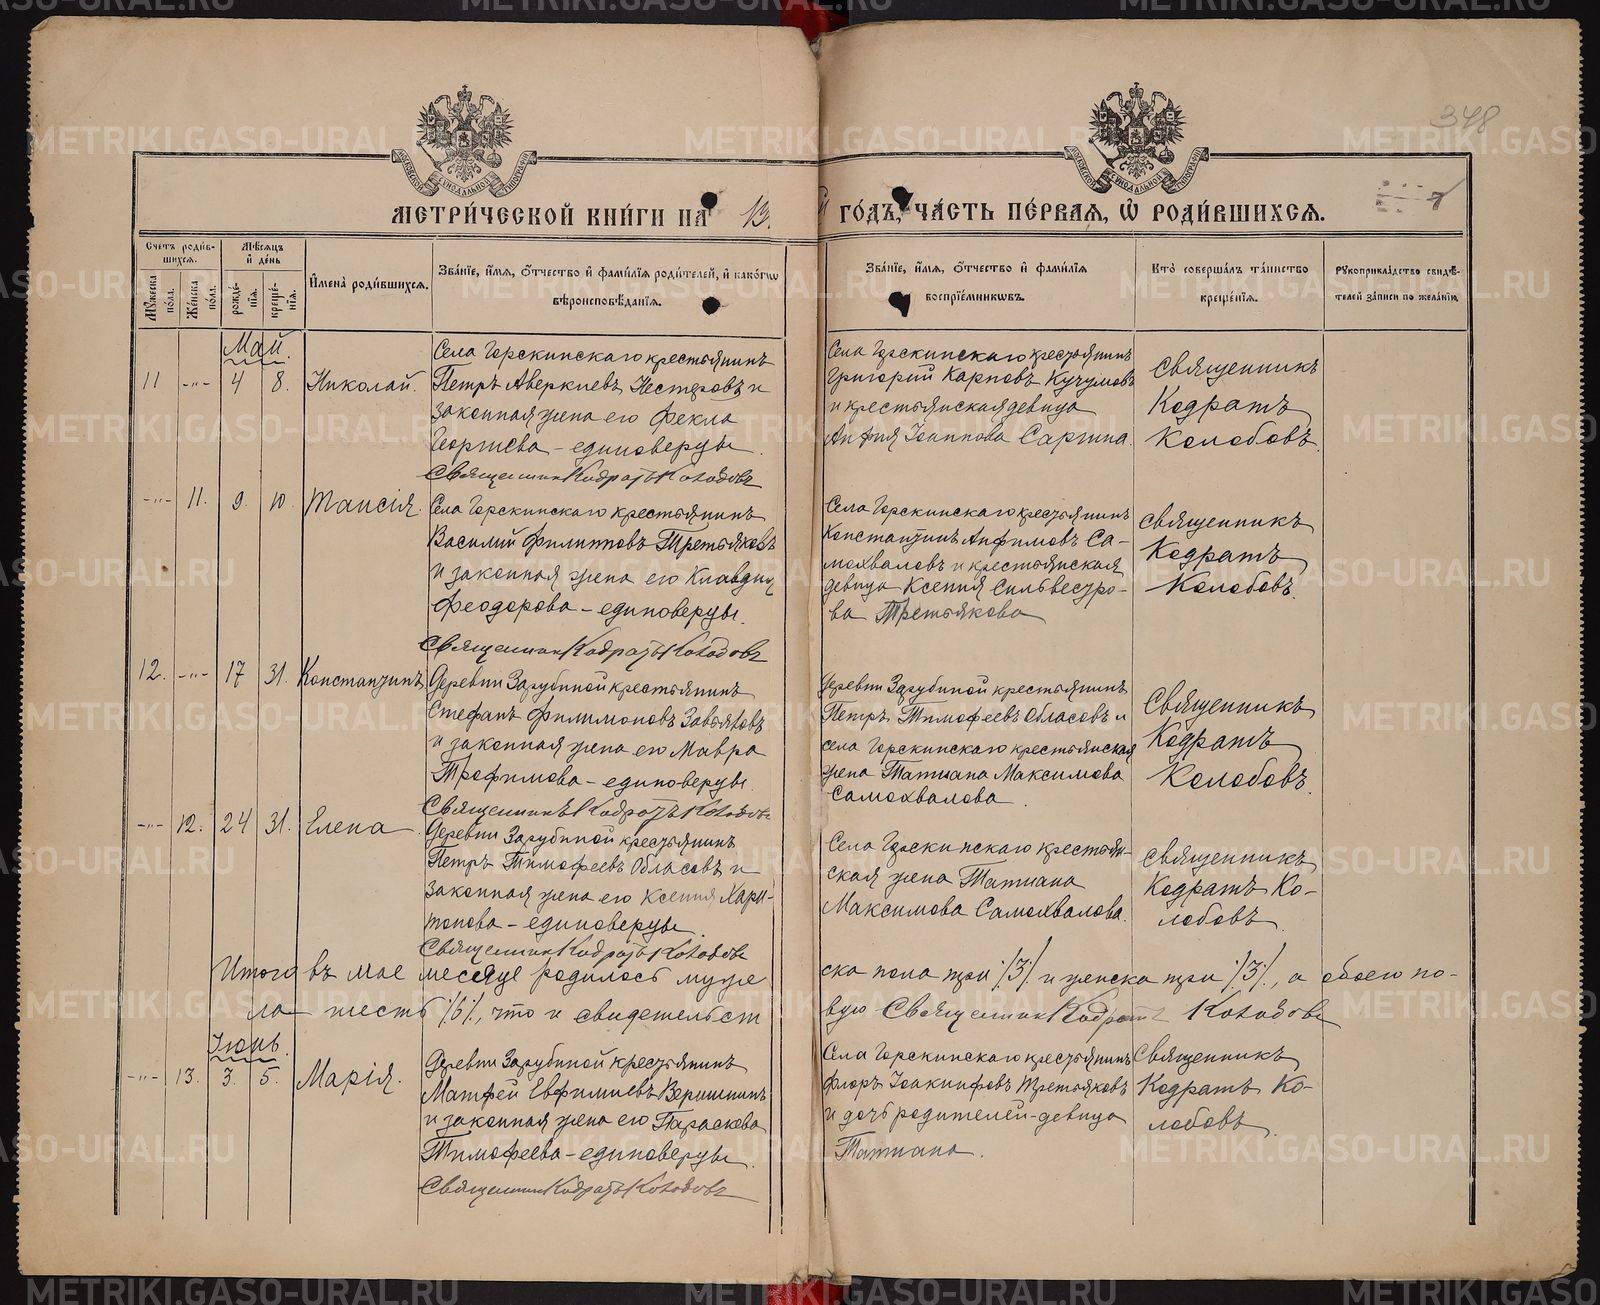 348
МЕТРИ́ЧЕСКОЙ КНИ́ГИ НА 19 ГО́ДЪ, ЧА́СТЬ ПЕ́РВАЯ, Ѽ РОДИ́ВШИХСЯ.
Сче́тъ роди́вшихся.
Му́жеска по́ла.
Же́нска по́ла.
Мѣ́сяцъ и҆ де́нь
рожде́нїя.
креще́нїя.
И҆мена̀ роди́вшихся.
Зва́нїе, и҆́мя, ѻ҆́тчество и҆ фами́лїя роди́телей, и҆ како́гѡ вѣроисповѣ́данїя.
Зва́нїе, и҆́мя, ѻ҆́тчество и҆ фами́лїя воспрїе́мникѡвъ.
Кто̀ соверша́лъ та́инство креще́нїя.
Рукоприкла́дство свидѣ́телей за́писи по жела́нїю
Май.
11 -„- 4 8. Николай.
Села Горскинскаго крестьянинъ
Петръ Аверкиевъ Нестеровъ и
законная жена его Фекла
Георгиева – единоверцы.
Священник Кодратъ Колобовъ
Села Горскинскаго крестьянинъ
Григорий Карповъ Кучумовъ
и крестьянская девица
Анфия Иоаннова Саргина.
Священникъ
Кодратъ
Колобовъ.
-„- 11. 9. 10. Таисія.
Села Горскинскаго крестьянинъ
Василий Филипповъ Третьяковъ
и законная жена его Клавдия
Феодорова – единоверцы.
Священник Кодратъ Колобовъ
Села Горскинскаго крестьянинъ
Константинъ Анфимовъ Са-
мохваловъ и крестьянская
девица Ксения Сильвестро-
ва Третьякова
Священникъ
Кодратъ
Колобовъ.
12. -„- 17 31. Константинъ
Деревни Зарубиной крестьянинъ
Стефанъ Филимоновъ Завьяловъ
и законная жена его Мавра
Трофимова – единоверцы.
Священникъ Кодратъ Колобовъ
Деревни Зарубиной крестьянинъ
Петръ Тимофеевъ Обласовъ и
села Горскинскаго крестьянская
жена Татиана Максимова
Самохвалова.
Священникъ
Кодратъ
Колобовъ.
-„- 12. 24 31. Елена
Деревни Зарубиной крестьянинъ
Петръ Тимофеевъ Обласовъ и
законная жена его Ксения Хари-
тонова – единоверцы.
Священник Кодратъ Колобовъ
Села Горскинскаго крестьян-
ская жена Татиана
Максимова Самохвалова.
Священникъ
Кодратъ Ко-
лобовъ
Итого въ мае месяце родилось муже ска пола три /3/ и женска три /3/, а обоего по-
ла шесть /6/, что и свидетельст вую Священник Кодратъ Колобовъ
Іюнь.
-„- 13. 3. 5. Марія.
Деревни Зарубиной крестьянинъ
Матфей Евфимиевъ Вершининъ
и законная жена его Параскева
Тимофеева – единоверцы.
Священник Кодратъ Колобовъ
Села Горскинскаго крестьянинъ
Флоръ Иоакинфовъ Третьяковъ
и дочь родителей – девица
Татиана.
Священникъ
Кодратъ Ко-
лобовъ
METRIKI.GASO-URAL.RU